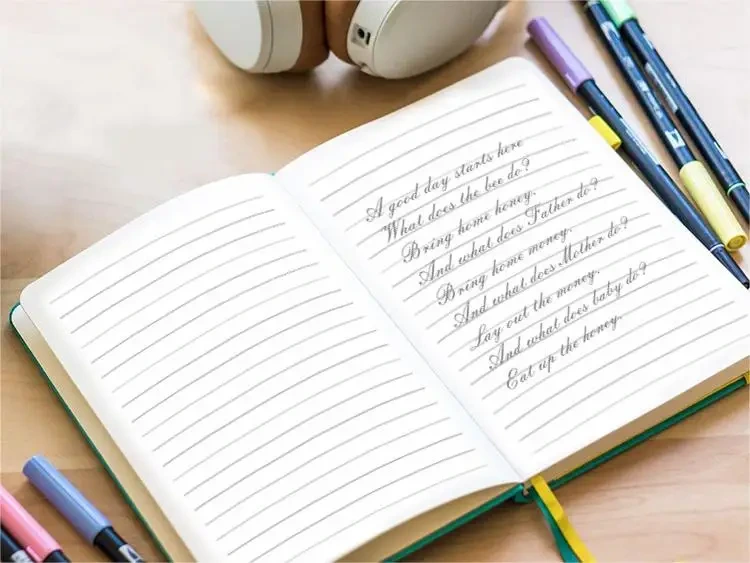 A good day starts here
What does the bee do?
Bring home honey.
And what does Father do?
Bring home money.
And what does Mother do?
Lay out the money.
And what does baby do?
Eat up the honey.